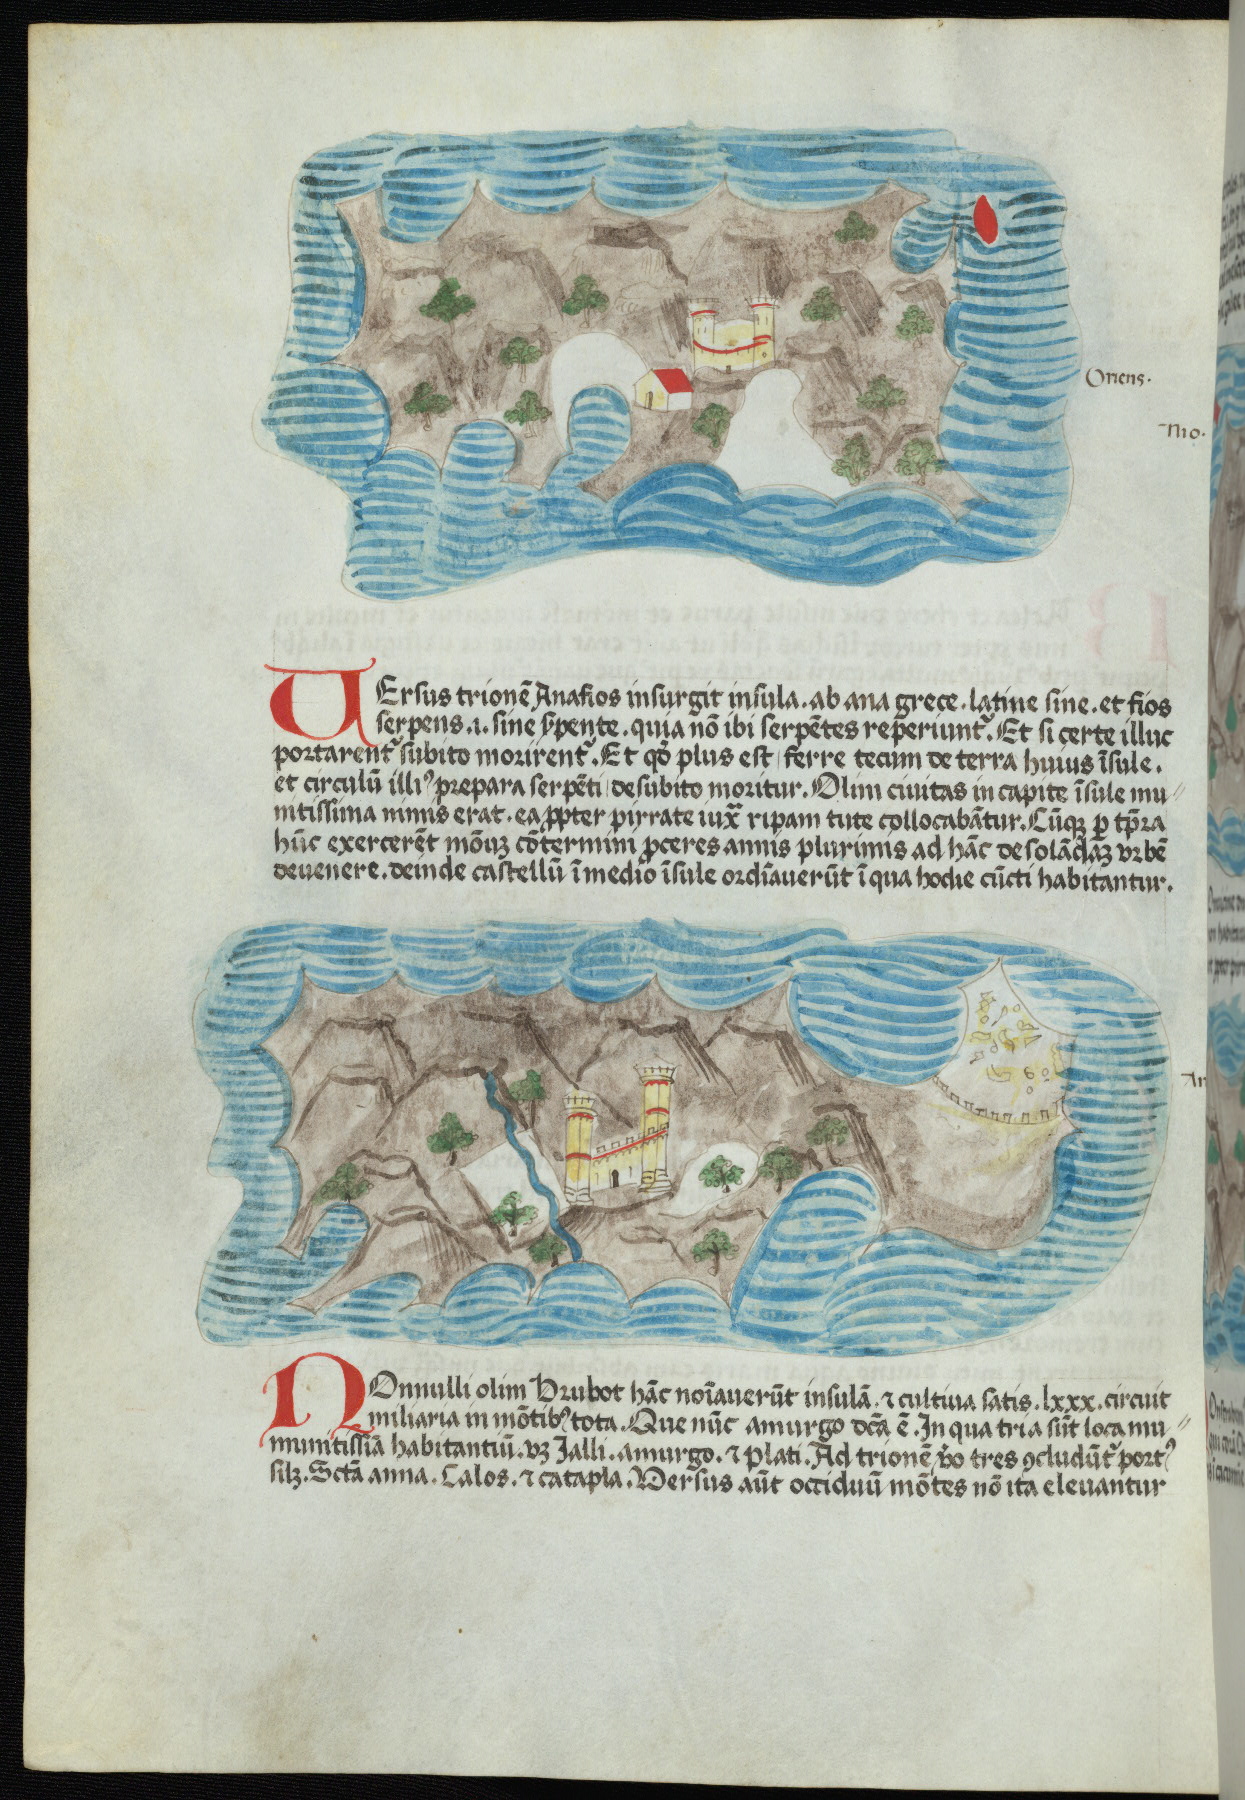 Oriens.
Nio.
VErsus trionē Anafios insurgit insula. ab ana grece. latine sine. et fios
serpens .i. sine sꝑpente. quia nō ibi serpētes reperiunt᷑. Et si certe illuc
portarent᷑ subito morirent᷑. Et qđ plus est ferre tecum de terra huius īsule.
et circulū illiꝰ prepara serpēti de subito moritur. Olim ciuitas in capite īsule mu
nitissima nimis erat. ea ꝓpter pirrate iuxͣ ripam tute collocabātur. Cūqꝫ ꝑ tp̄ra
hūc exercerēt mōuꝫ cōtermini ꝓceres annis plurimis ad hāc desolādāꝫ vrbē
deuenere. deinde castellū ī medio īsule ordīauerūt ī qua hodie cūcti habitantur.
Am
NOnnulli olim Brubot hāc noīauerūt insulā. ⁊ cultiua satis. lxxx. circuit
miliaria in mōtibꝰ tota. Que nūc amurgo dc̄a ē. In qua tria sūt loca mu
munitissiā habitantiū. vꝫ Ialli. amurgo. ⁊ Plati. Ad trionē v̊o tres ꝯcludūt᷑ portꝰ
silꝫ. Sctā anna. Calos. ⁊ catapla. Versus aūt occiduū mōtes nō ita eleuantur